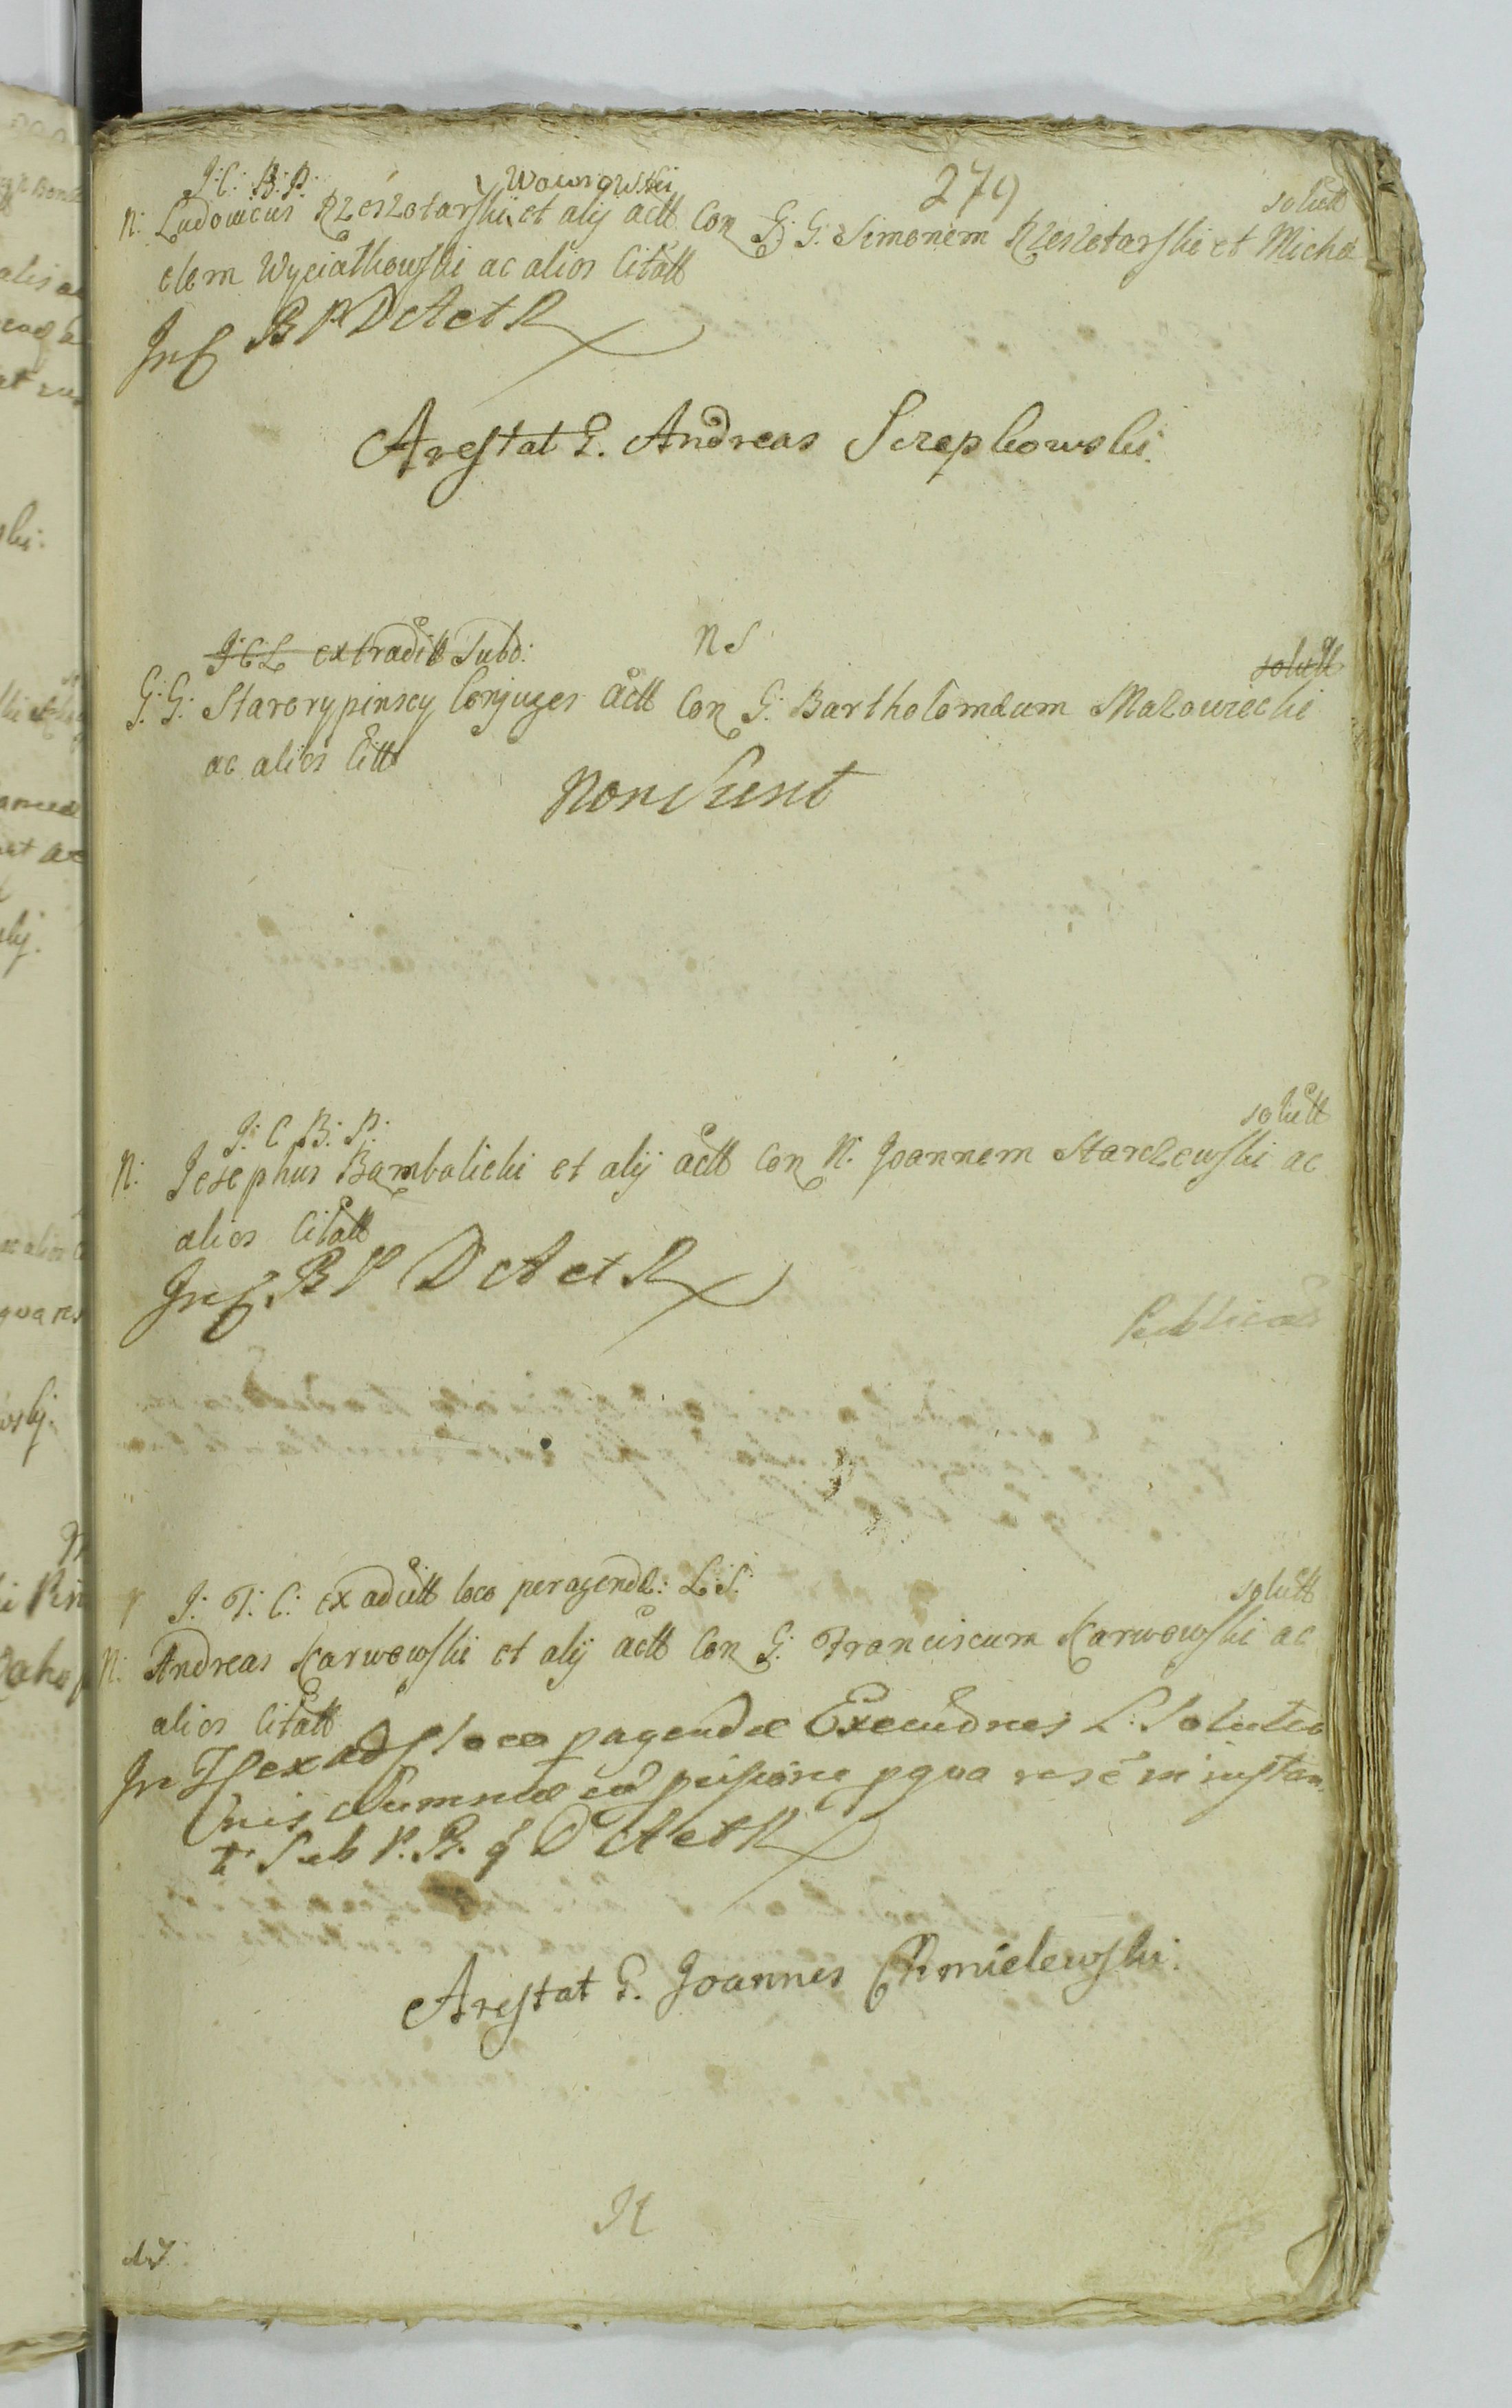 279
J: C: B: P: Wawrowski solutt
N: Ludovicus Rzeszotarski et alij actt Con G: G: Simonem Rzeszotarski et Micha
elem Wyciatkowski ac alios Citatt
In C B P D A et R
Arestat G. Andreas Screpkowski.
J: C L extradit Subd: NS solutt
G: G: Starorypinscy Conjuges actt Con G: Bartholomæum Mazowiecki
ac alios Citt
Non sunt
J: C B: P: solutt
N: Josephus Bambalicki et alij actt Con N: Joannem Starczewski ac
alios Citatt
In C. B P D A et R
Publicat
J: T: C: ex adcitt loco peragendæ: L: S: solutt
N: Andreas Karwowski et alij actt Con G: Franciscum Karwowski ac
alios Citatt
In T C ex ad loco pagendæ L: Soluta
Summæ pqua instan
Sub P. B. D A et R
Arestat G. Joannes Chmielewski.